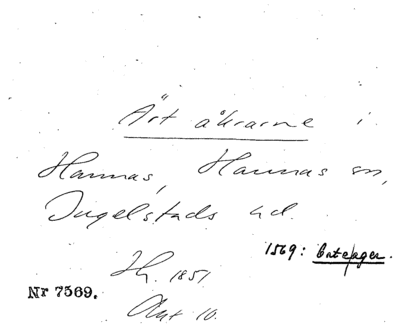 Ärt åkrarne i
Hannas, Hannas sn,
Ingelstads hd.
1569:
Nr 7569.
1851
Akt 10.